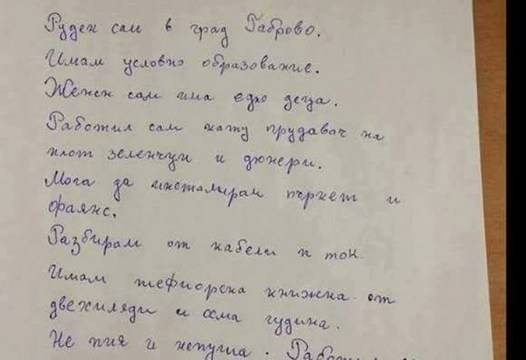 Руден сам в град Габрово.
Имам условно образование.
Женен сам има едно деца.
Работил сам кату прудавач на
плот зеленчуци и дюнери.
Мога да инсталирам пъркет и
фаянс.
Разбирам от кабели и ток.
Имам шефиорска книжка от
двехиляди и осма гудина.
Не пия и непуша.